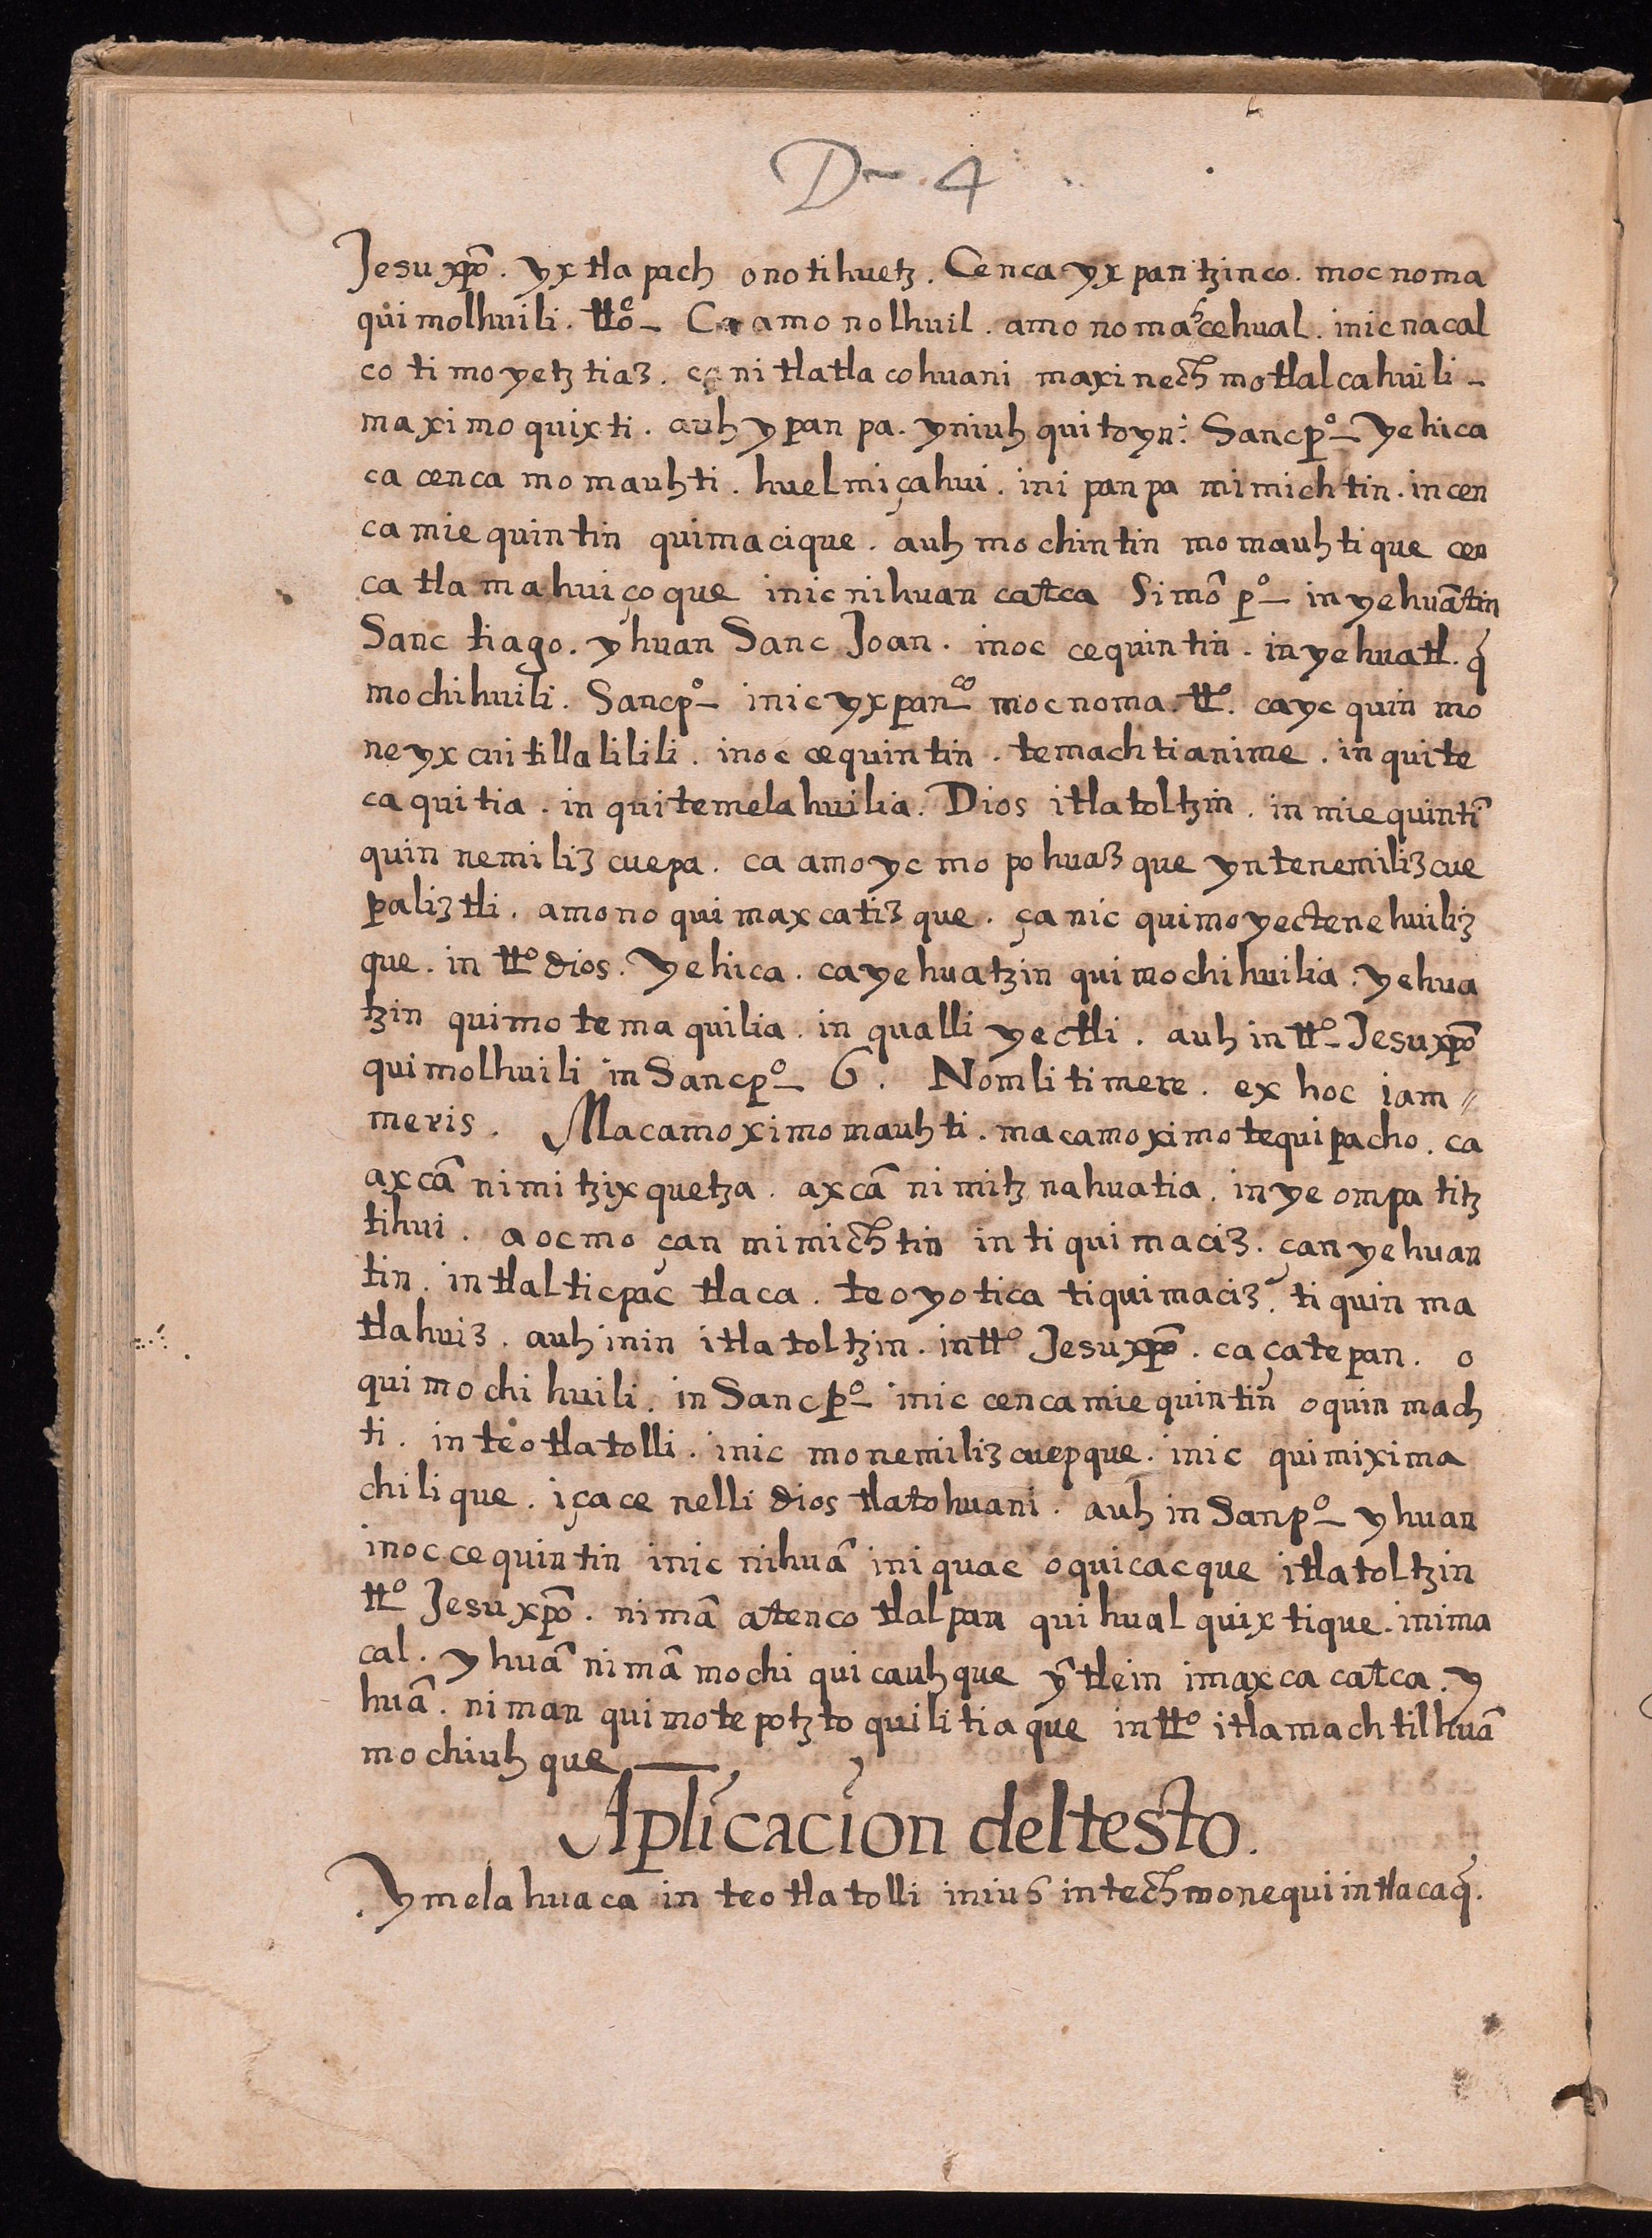 D~ 4
Jesu xp̄o. yx tla pach ono ti huetz. Cenca yx pan tzin co. moc no ma
qui molhuili. tt̄oe — Ca amo no lhuil. amo no mahcehual. inic na cal
co ti mo yetz tiaz. ca ni tlatla co huani maxi nech motlal cahuili —
maxi mo quix ti. auh y pan pa. yniuh qui to yn: Sanc po — Ye hica
ca cenca mo mauh ti. huel miçahui. ini pan pa mi mich tin. in cen
ca mie quin tin quima ci que. auh mo chin tin mo mauh ti que cen
ca tla ma hui ço que inic ni huan catca Simō po — in ye huātin
Sanc tiago. y huan Sanc Joan. inoc ce quin tin. in ye huatl. q̄
mo chi huili. Sanc po — inic yx panco moc no ma. tto. ca yc quin mo
ne yx cui tilla lilili. inoc ce quin tin. te mach ti ani me. in qui te
ca qui tia. in qui te mela huilia. Dios itla toltzin. in mie quintī
quin nemi liz cuepa. ca amo yc mo po huaz que yn te nemiliz cue
paliz tli. amo no qui max ca tiz que. ça nic qui mo yectene huiliz
que. in tto dios. Ye hica. ca ye huatzin qui mo chi huilia. Ye hua
tzin qui mo te ma quilia. in qualli yectli. auh in tto — Jesu xp̄o
qui molhuili in Sanc po — 6. Nomli ti mere. ex hoc iam =
meris. Macamo ximo mauh ti. ma camo ximo tequi pacho. ca
ax cā ni mi tzix quetza. ax cā ni mitz na huatia. in ye ompa titz
tihui. aoc mo çan mi mich tin in ti qui ma ciz. çan ye huan
tin. in tlal tic pac tla ca. te o yo tica ti qui ma ciz. ti quin ma
tla huiz. auh inin itla tol tzin. in tto Jesu xp̄o. ca ça te pan. o
qui mo chi huili. in Sanc po — inic cen ca mie quin tin o quin mach
ti. in teo tla tolli. inic mo nemiliz cuep que. inic qui mixi ma
chi li que. i ça ce nelli dios tlatohuani. auh in San po — y huan
inoc ce quin tin inic ni huā ini quac o qui cac que itla tol tzin
tto Jesu xp̄o. ni mā atenco tlal pan qui hual quix tique. inima
cal. y huā ni mā mo chi qui cauh que ȳ tlein imax ca catca. y
huā. ni man qui mo te potz to quili tia que in tto itla mach til huā
mo chiuh que —
Aplicacion del testo.
. Y mela hua ca in teo tla tolli iniuh intech monequi in tlacaq̄.